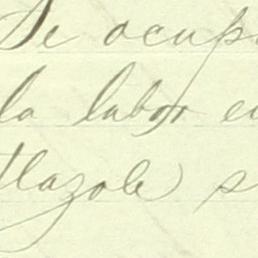 Se ocup
la labor en
tlazole s